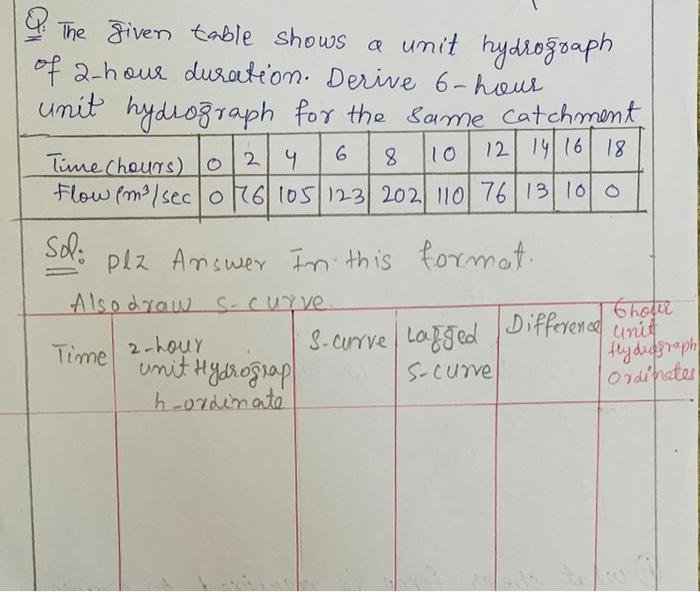 Q. The given table shows a unit hydrograph
of 2-hour duration. Derive 6-hour
unit hydrograph for the same catchment
Time (hours) 0 2 4 6 8 10 12 14 16 18
Flow (m³/sec 0 76 105 123 202 110 76 13 10 0
Sol: plz Answer In this format.
Also draw s-curve
Time 2-hour unit Hydrograp h-ordinate S-curve Lagged S-curve Difference 6 hour unit Hydrograph Ordinates